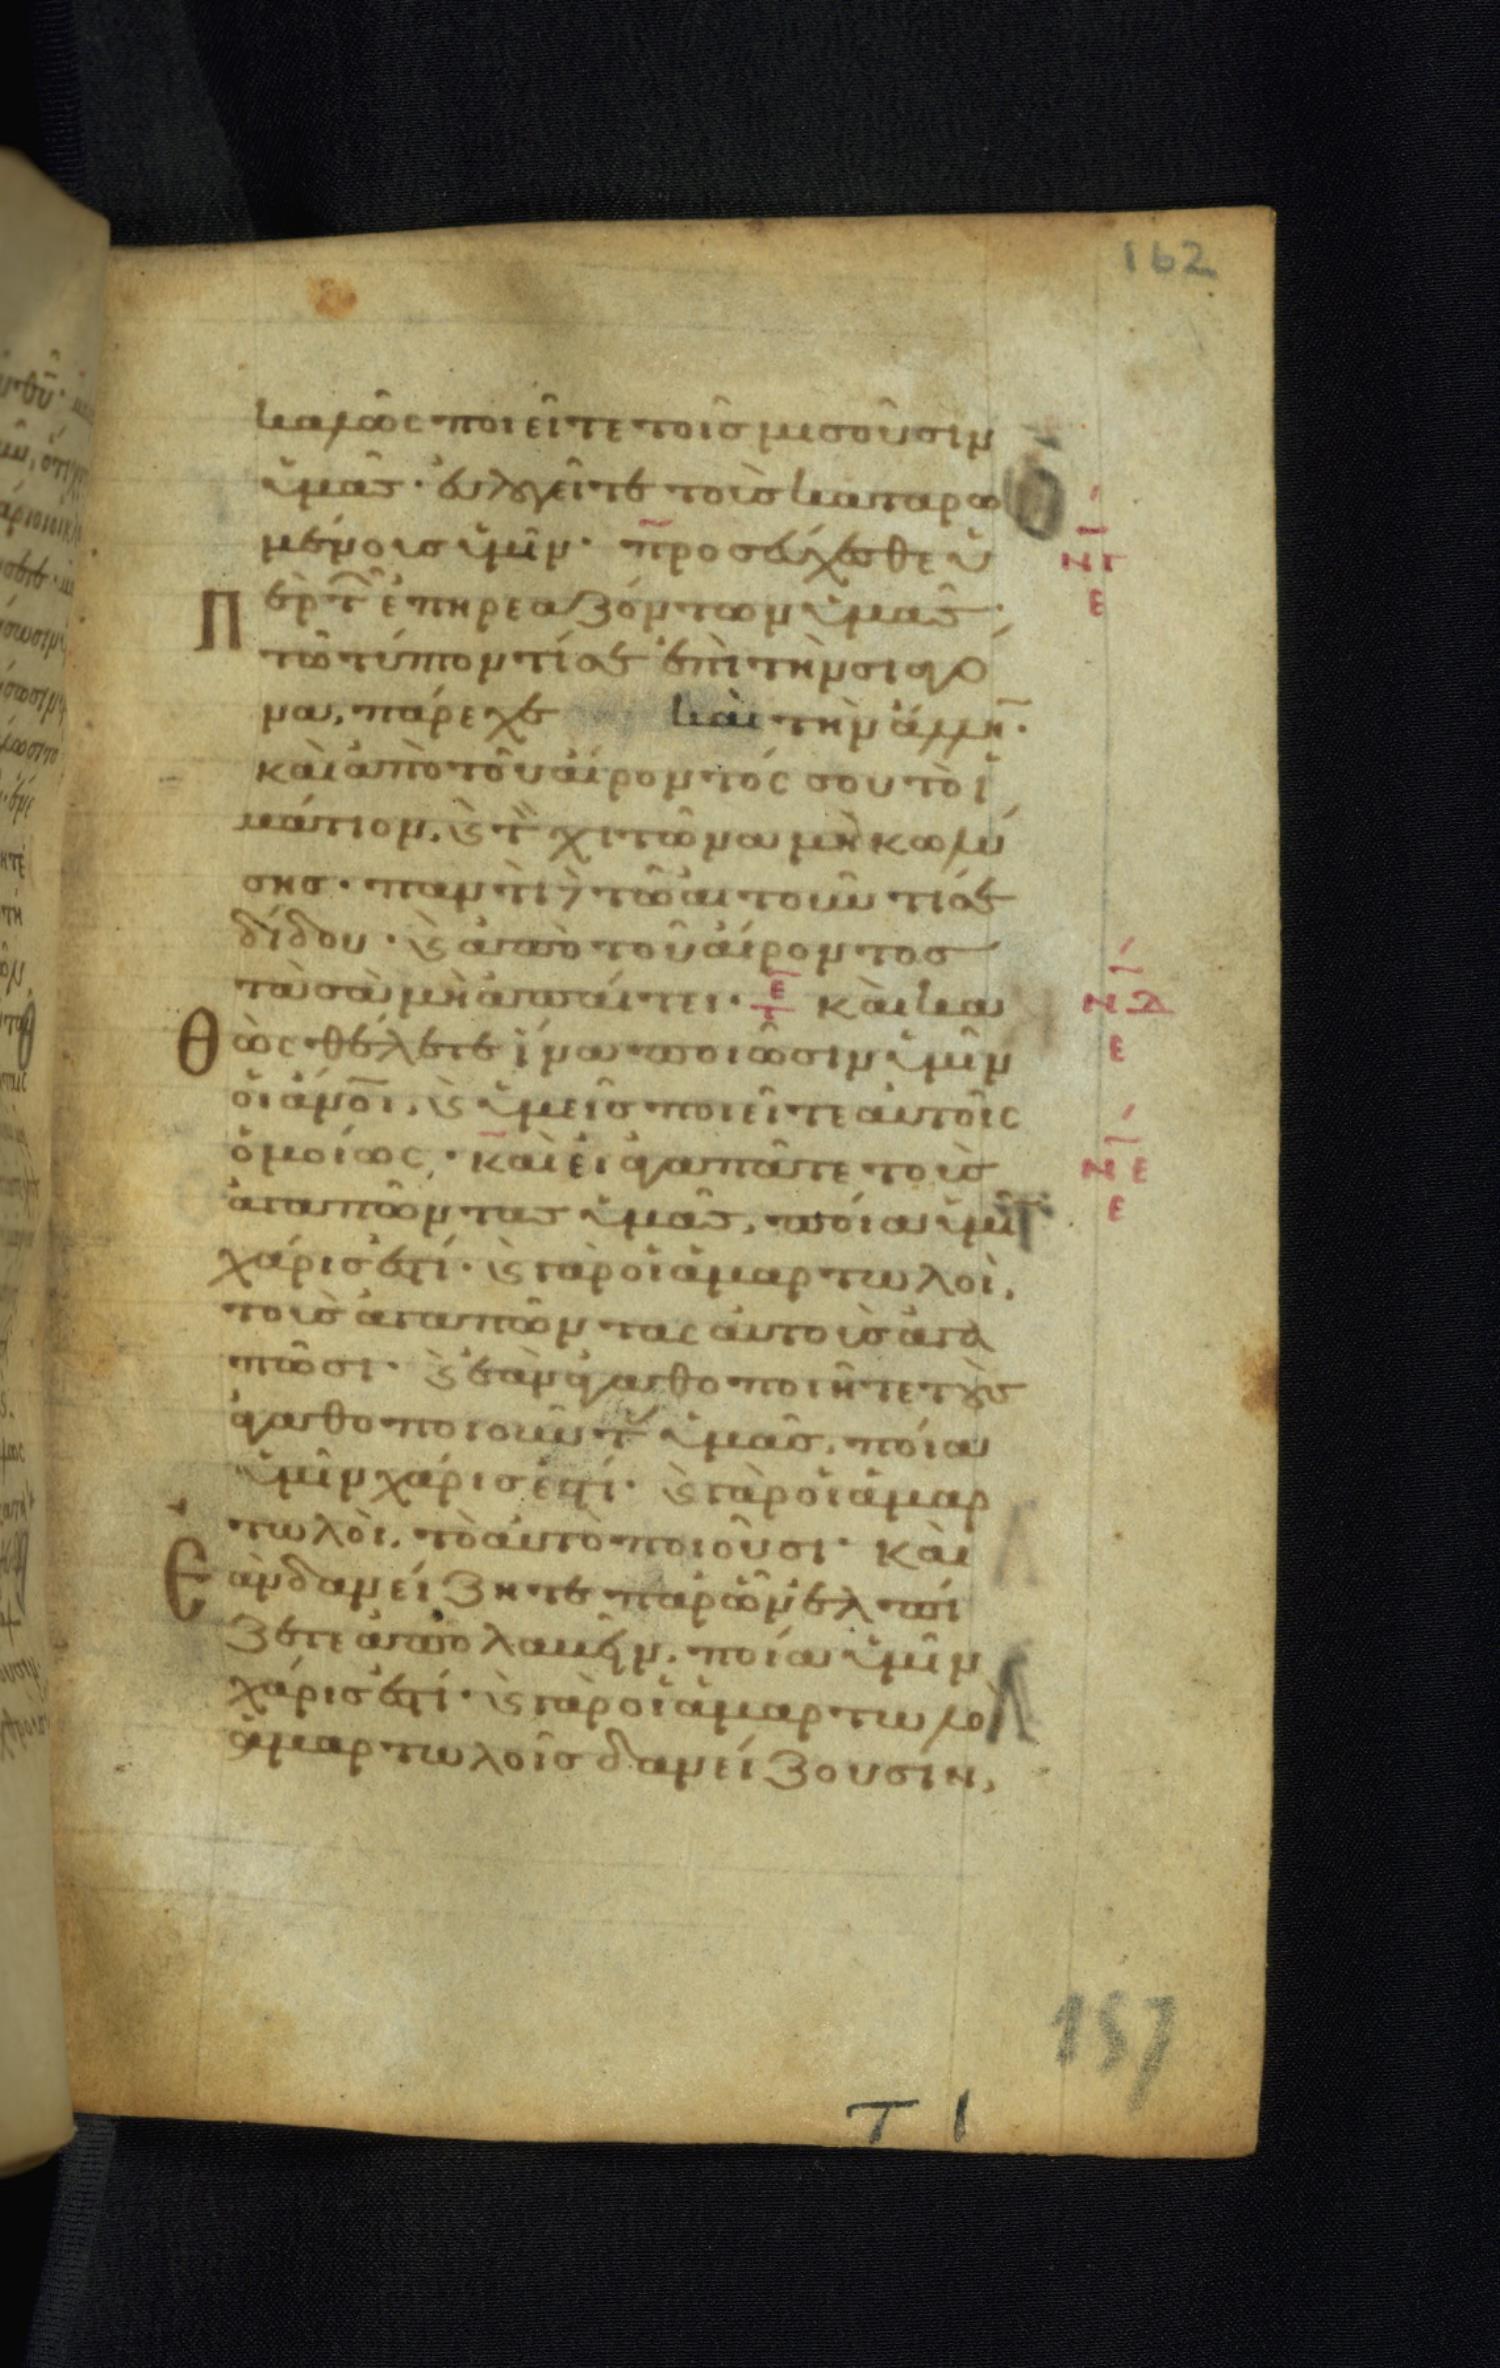 162
καλῶς ποιεῖτε τοῖς μισοῦσιν
ὑμᾶς · εὐλογεῖτε τοῖς καταρω
μένοις ὑμῖν · προσεύχεσθε ὑ
Π ὲρ τῶν ἐπηρεαζόντων ὑμᾶς ·
τῶ τύπτοντί σε ἐπὶ τὴν σιαγό
να, πάρεχε καὶ τὴν ἄλλην ·
καὶ ἀπὸ τοῦ αἴροντός σου τὸ ἱ
μάτιον, ϗ τὸν χιτῶνα μὴ κωλύ
σης · παντὶ δὲ τῶ αἰτοῦντί σε
δίδου · ϗ ἀπὸ τοῦ αἴροντος
τὰ σὰ μὴ ἀπαίτει · καὶ κα
θὼς θέλετε ἵνα ποιῶσιν ὑμῖν
οἱ ἄνοι, ϗ ὑμεῖς ποιεῖτε αὐτοῖς
ὁμοίως · καὶ εἰ ἀγαπᾶτε τοὺς
ἀγαπῶντας ὑμᾶς, ποία ὑμῖν
χάρις ἐστί · ϗ γὰρ οἱ ἁμαρτωλοὶ,
τοὺς ἀγαπῶντας αὐτοὺς ἀγα
πῶσι · ϗ ἐὰν ἀγαθοποιῆτε τοὺς
ἀγαθοποιοῦντας ὑμᾶς, ποία
ὑμῖν χάρις ἐστί · ϗ γὰρ οἱ ἁμαρ
τωλοὶ, τὸ αὐτὸ ποιοῦσι · καὶ
Ε ὰν δανείζητε παρ ὧν ἐλπί
ζετε ἀπολαβεῖν, ποία ὑμῖν
χάρις ἐστί · ϗ γὰρ οἱ ἁμαρτωλοὶ
ἁμαρτωλοῖς δανείζουσιν,
157
Τ Ι